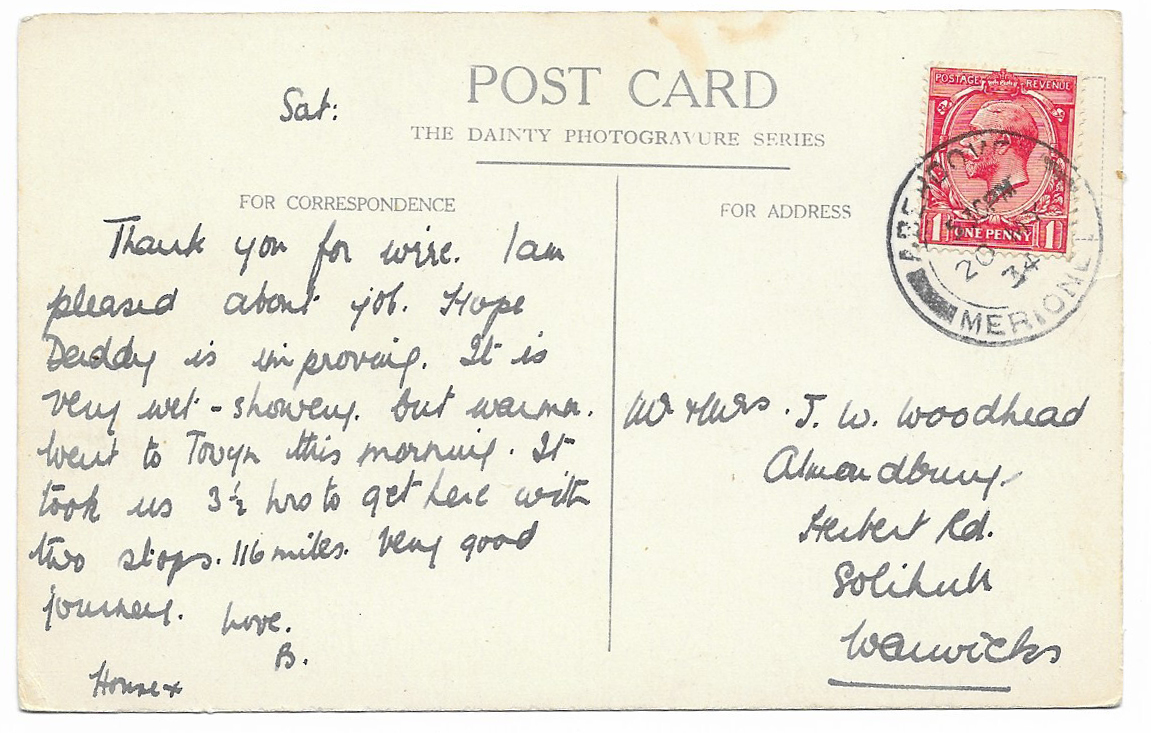 POST CARD
THE DAINTY PHOTOGRAVURE SERIES
Sat:
FOR CORRESPONDENCE
Thank you for wire. I am
pleased about job. Hope
Daddy is improving. It is
very wet - showery. but warmer.
Went to Towyn this morning. It
took us 3½ hrs to get here with
two stops. 116 miles. Very good
journey. Love.
B.
House x
FOR ADDRESS
Mr & Mrs. J. W. Woodhead
Almondbury
Herbert Rd.
Solihull
Warwicks
POSTAGE REVENUE
1 ONE PENNY 1
PM
20
34
MERIONETH